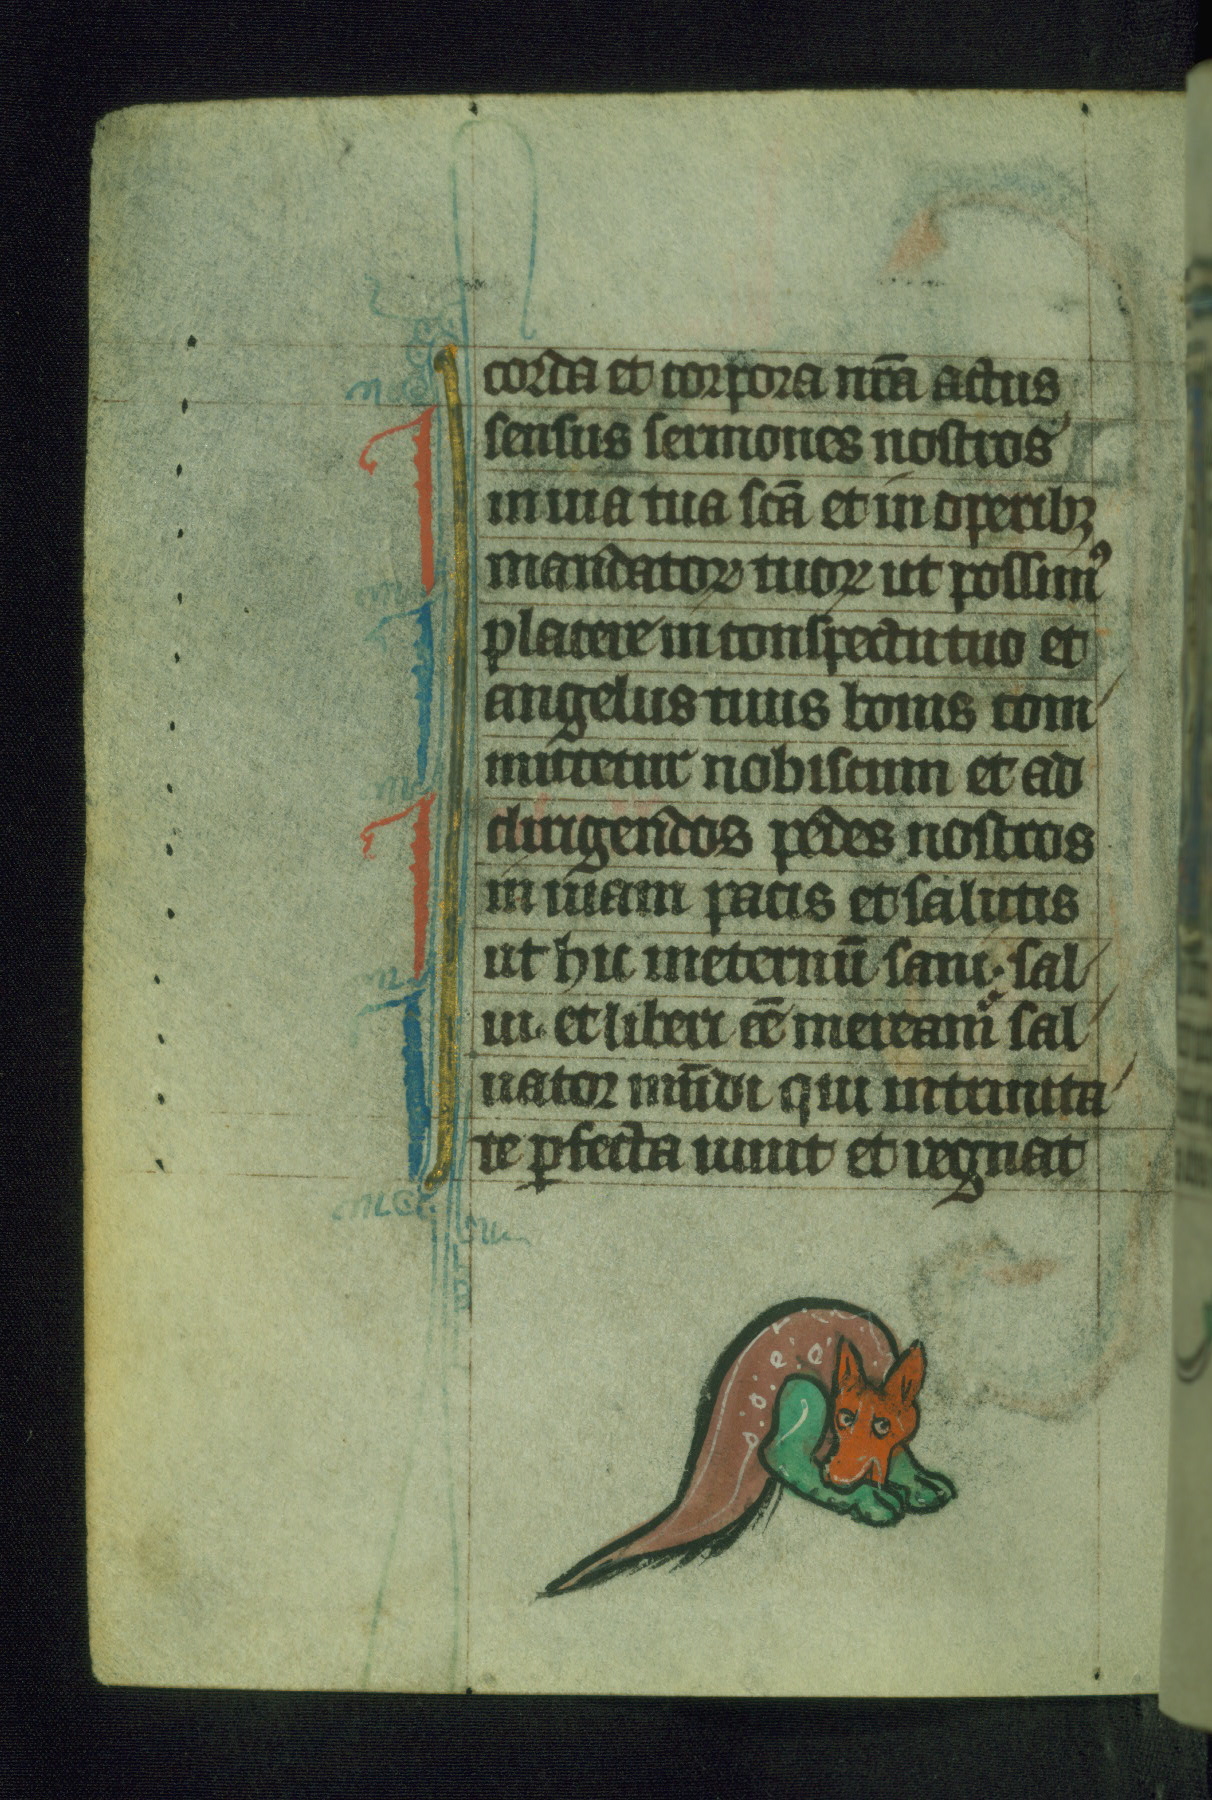 corda et corpora nr̃a actus
sensus sermones nostros
in uia tua sc̃a et in operibꝫ
mandatoꝝ tuoꝝ ut possimꝰ
placere in conspectu tuo et
angelus tuus bonus com
mittetur nobiscum et ad
dirigendos pedes nostros
in uiam pacis et salutis
ut hic in eternũ sani· sal
ui· et liberi eẽ mereamͥ sal
uator mũdi qui in trinita
te ꝑfecta uiuit et regnat